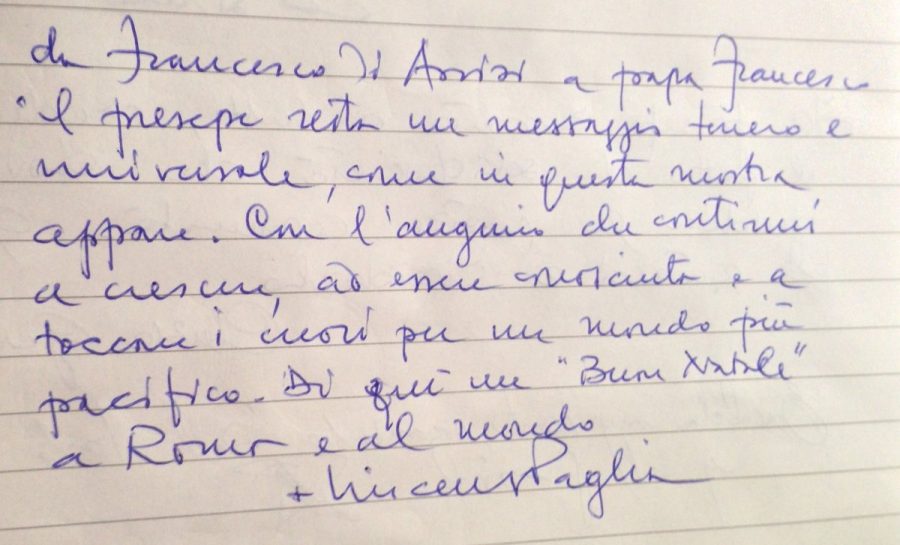 da Francesco di Assisi a papa Francesco
il presepe resta un messaggio tenero e
universale, come in questa mostra
appare. Con l'augurio che continui
a crescere, ad essere conosciuta e a
toccare i cuori per un mondo più
pacifico. Di qui un "Buon Natale"
a Roma e al mondo
+ Vincenzo Paglia